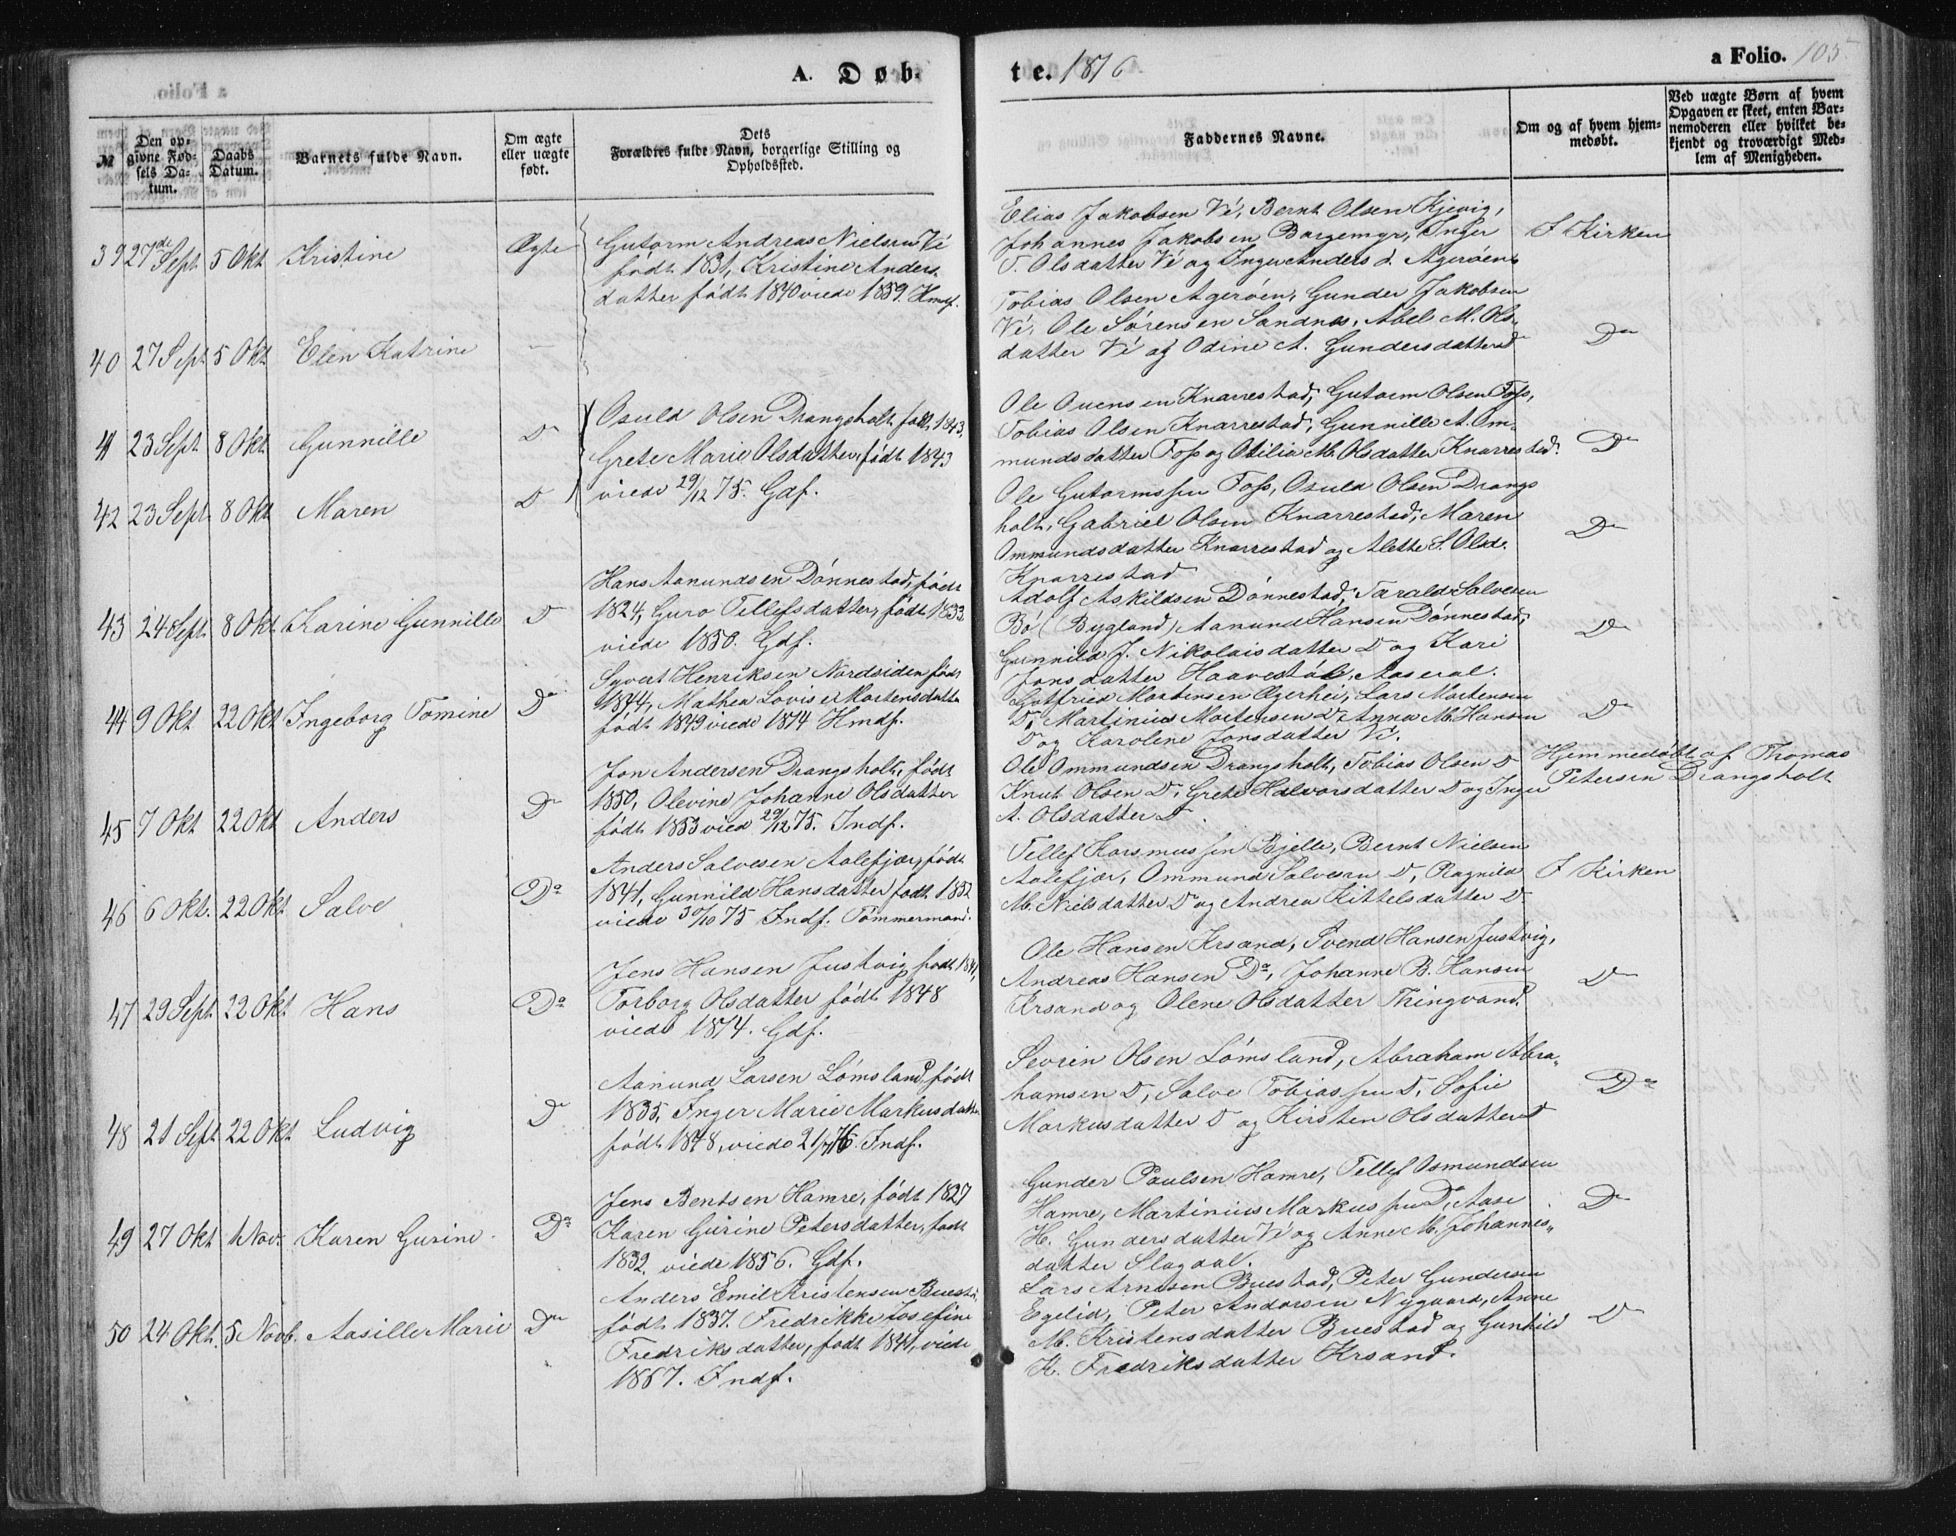 A. Døb-
te. 1876
a Folio. 105
№
Den op-
givne Fød-
sels Da-
tum.
Daabs
Datum.
Barnets fulde Navn.
Om ægte
eller uægte
født.
Dets
Forældres fulde Navn, borgerlige Stilling og
Opholdssted.
Faddernes Navne.
Om og af hvem hjem-
medøbt.
Ved uægte Børn af hvem
Opgaven er skeet, enten Bar-
nemoderen eller hvilket be-
kjendt og troværdigt Med-
lem af Menigheden.
39 27de Sept 5 Okt Kristine Ægte
Gutorm Andreas Nielsen Vé
født 1831, Kristine Anders
datter født 1840 viede 1859. Hmdf.
Elias Jakobsen Vé, Bernt Olsen Kjevig,
Johannes Jakobsen Borgemyr, Inger
T. Olsdatter Vé og Inger Anders d. Agerøen
I Kirken
40 27 Sept 5 Okt. Elen Katrine —
Tobias Olsen Agerøen, Gunder Jakobsen
Vé, Ole Sørensen Sandnes, Abel M. Ols-
datter Vé og Odine A. Gundersdatter D
Do
41 23 Sept 8 Okt. Gunnille D
Osuld Olsen Drangsholt, født 1843,
Grete Marie Olsdatter, født 1843
viede 29/12 75. Gdf.
Ole Ouensen Knarrestad, Gutorm Olsen Foss,
Tobias Olsen Knarrestad, Gunnille A. Om-
mundsdatter Foss og Otilia M. Olsdatter Knarrestad.
Do
42 23 Sept. 8 Okt Maren D
Ole Gutormssen Foss, Osuld Olsen Drangs
holt, Gabriel Olsen Knarrestad, Maren
Ommundsdatter Knarrestad og Alette S. Olsd.
Knarrestad
Do
43 24 Sept. 8 Okt. Karine Gunnille D
Hans Aanundsen Dønnestad, født
1824, Guro Tellefsdatter, født 1833
viede 1850. Gdf.
Adolf Askildsen Dønnestad, Tarald Salvesen
Bø (Bygland) Aanund Hansen Dønnestad,
Gunnild J. Nikolaisdatter D og Kari
Jonsdatter Haavestøl, Aaseral.
Do
44 9 Okt 22 Okt Ingeborg Tomine Do
Syvert Henriksen Nordsiden født
1844, Mathea Lovise Mortensdatter
født 1849 viede 1874 Hmdf.
Gotfried Martinsen Ægerhei, Lars Mortensen
D, Martinius Mortensen D, Anna M. Hansen
D og Karoline Jonsdatter Vé.
Do
45 7 Okt 22 Okt Anders Do
Jon Andersen Drangsholt, født
1850, Olevine Johanne Olsdatter
født 1853 viede 29/12 75. Indf.
Ole Ommundsen Drangsholt, Tobias Olsen D
Knut Olsen D, Grete Halvorsdatter D og Inger
A. Olsdatter D
Hjemmedøbt af Thomas
Petersen Drangsholt
46 6 Okt. 22 Okt. Salve Do
Anders Salvesen Aalefjær, født
1841, Gunnild Hansdatter født 1852
viede 30/10 75 Indf. Tømmermand.
Tellef Rasmussen Bjelle, Bernt Nielsen
Aalefjær, Ommund Salvesen D, Ragnild
M. Nielsdatter D og Andrea Kittelsdatter D
I Kirken
47 29 Sept. 22 Okt. Hans Do
Jens Hansen Justvig født 1841,
Torborg Olsdatter født 1848
viede 1874. Gdf.
Ole Hansen Krsand, Svend Hansen Justvig,
Andreas Hansen Do, Johanne B. Hansen
Krsand og Olene Olsdatter Thingvand.
D
48 21 Sept 22 Okt. Ludvig Do
Aanund Larsen Lømsland, født
1835, Inger Marie Markusdatter
født 1848, viede 21/7 76. Indf.
Sevrin Olsen Lømsland, Abraham Abra-
hamsen D, Salve Tobiassen D, Sofie
Markusdatter D og Kirsten Olsdatter D
Do
49 27 Okt. 1 Nov. Karen Gurine Do
Jens Bentsen Hamre, født 1827
Karen Gurine Petersdatter, født
1832, viede 1856. Gdf.
Gunder Paulsen Hamre, Tellef Osmundsen
Hamre, Martinius Markussen D, Aase
H. Gundersdatter Vé og Anne M. Johannis-
datter Slagdal.
Do
50 24 Okt. 5 Novb. Aasille Marie Do
Anders Emil Kristensen Buestad
født 1837. Fredrikke Josefine
Fredriksdatter, født 1841, viede
1867. Indf.
Lars Arntsen Buestad, Peter Gundersen
Egelid, Peter Andersen Nygaard, Anne
M. Kristensdatter Buestad og Gunhild
K. Fredriksdatter Krsand.
D